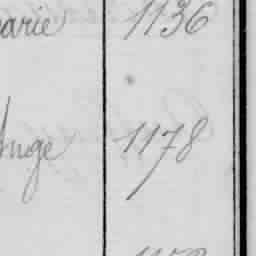 arie 1136
Ange 1178